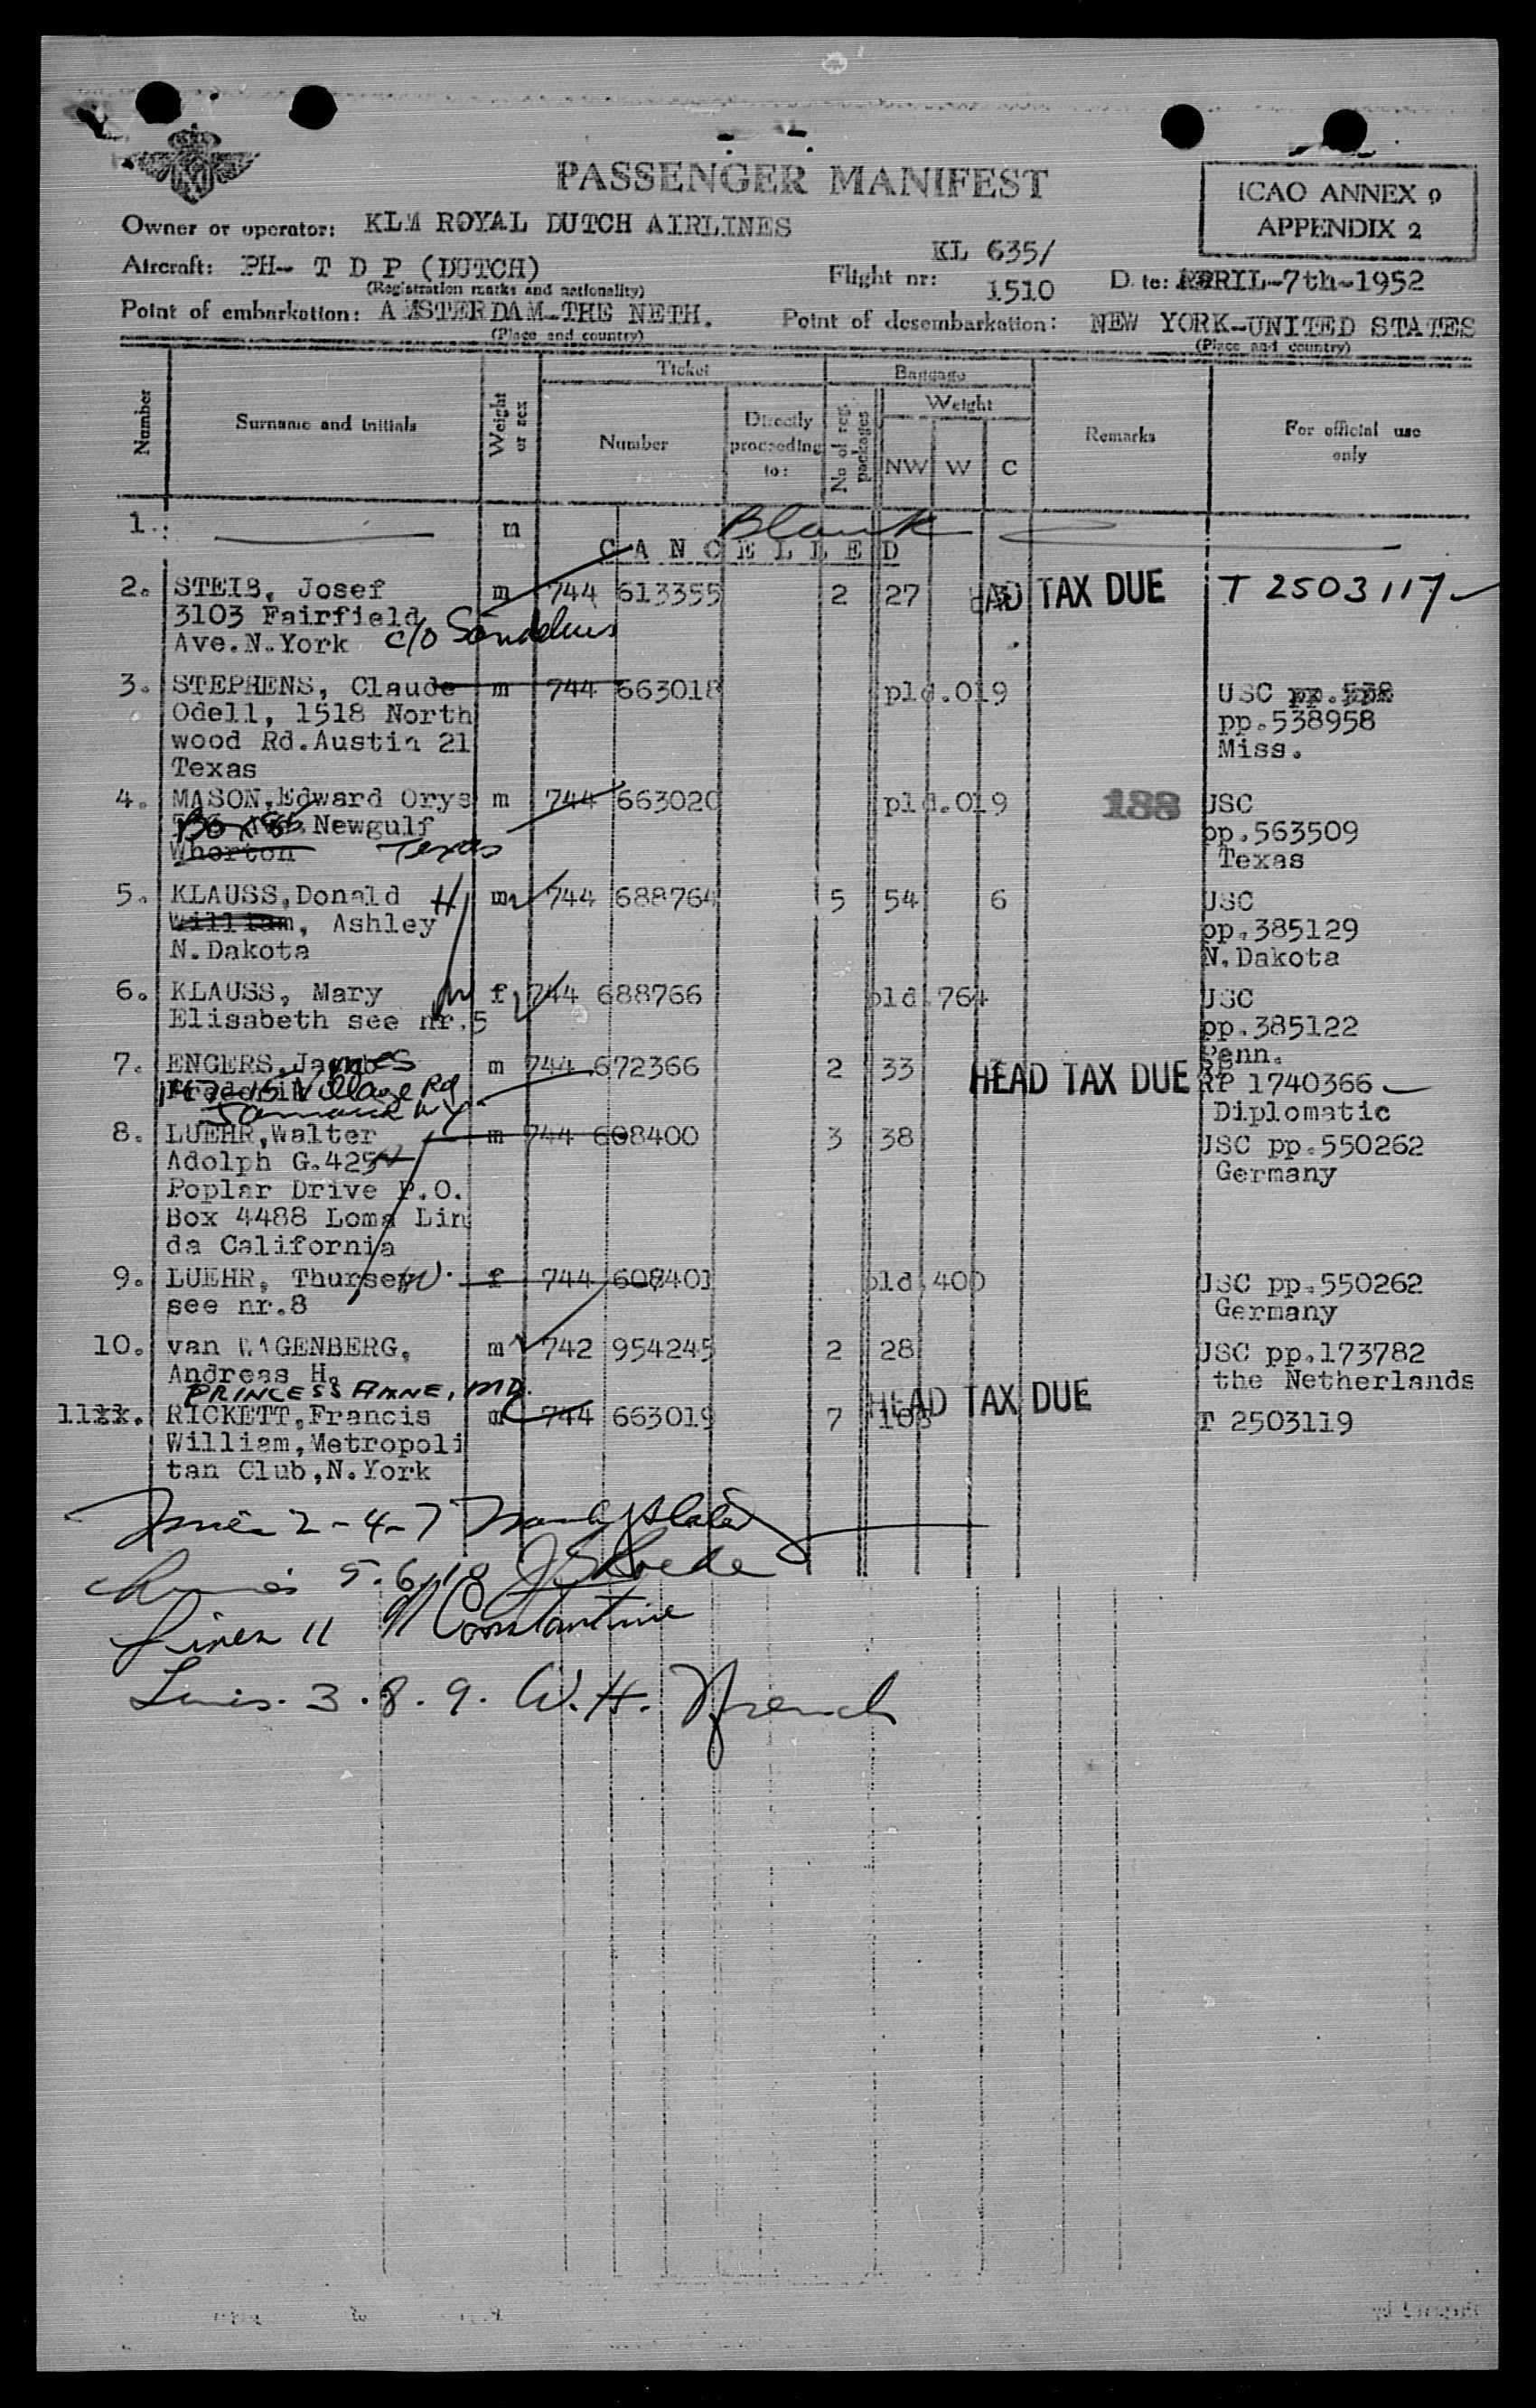 PASSENGER MANIFEST
ICAO ANNEX 9
APPENDIX 2
Owner or operator: KLM ROYAL DUTCH AIRLINES
Aircraft: PH- T D P (DUTCH)
(Registration marks and nationality)
Flight nr: KL 635/
1510
Date: APRIL-7th-1952
Point of embarkation: AMSTERDAM-THE NETH.
(Place and country)
Point of desembarkation: NEW YORK-UNITED STATES
(Place and country)
Number
Surname and initials
Weight or sex
Ticket
Number
Directly proceeding to:
Baggage
No of reg. packages
Weight
NW W C
Remarks
For official use only
1. m Blank
CANCELLED
2. STEIB, Josef m 744 613355 2 27 HEAD TAX DUE T 2503117
3103 Fairfield
Ave.N.York c/o
3. STEPHENS, Claude m 744 663018 pld.019 USC pp.538
Odell, 1518 North pp.538958
wood Rd.Austin 21 Miss.
Texas
4. MASON,Edward Orys m 744 663020 pld.019 188 USC
Box 86 Newgulf pp.563509
Whorton Texas Texas
5. KLAUSS,Donald H m 744 688764 5 54 6 USC
William, Ashley pp.385129
N.Dakota N.Dakota
6. KLAUSS, Mary f 744 688766 pld 764 USC
Elisabeth see nr.5 pp.385122
Penn.
7. ENGERS, m 744 672366 2 33 HEAD TAX DUE RP 1740366
Village Rd Diplomatic
8. LUEHR,Walter m 744 608400 3 38 USC pp.550262
Adolph G.425 Germany
Poplar Drive P.O.
Box 4488 Loma Lin
da California
9. LUEHR, W. f 744 608401 pld 400 USC pp.550262
see nr.8 Germany
10. van WAGENBERG, m 742 954245 2 28 USC pp.173782
Andreas H. the Netherlands
PRINCESS ANNE, MD.
11xx. RICKETT,Francis m 744 663019 7 103 HEAD TAX DUE T 2503119
William,Metropoli
tan Club,N.York
2-4-7
5.6.10
11 Constantine
3.8.9. W.H. French